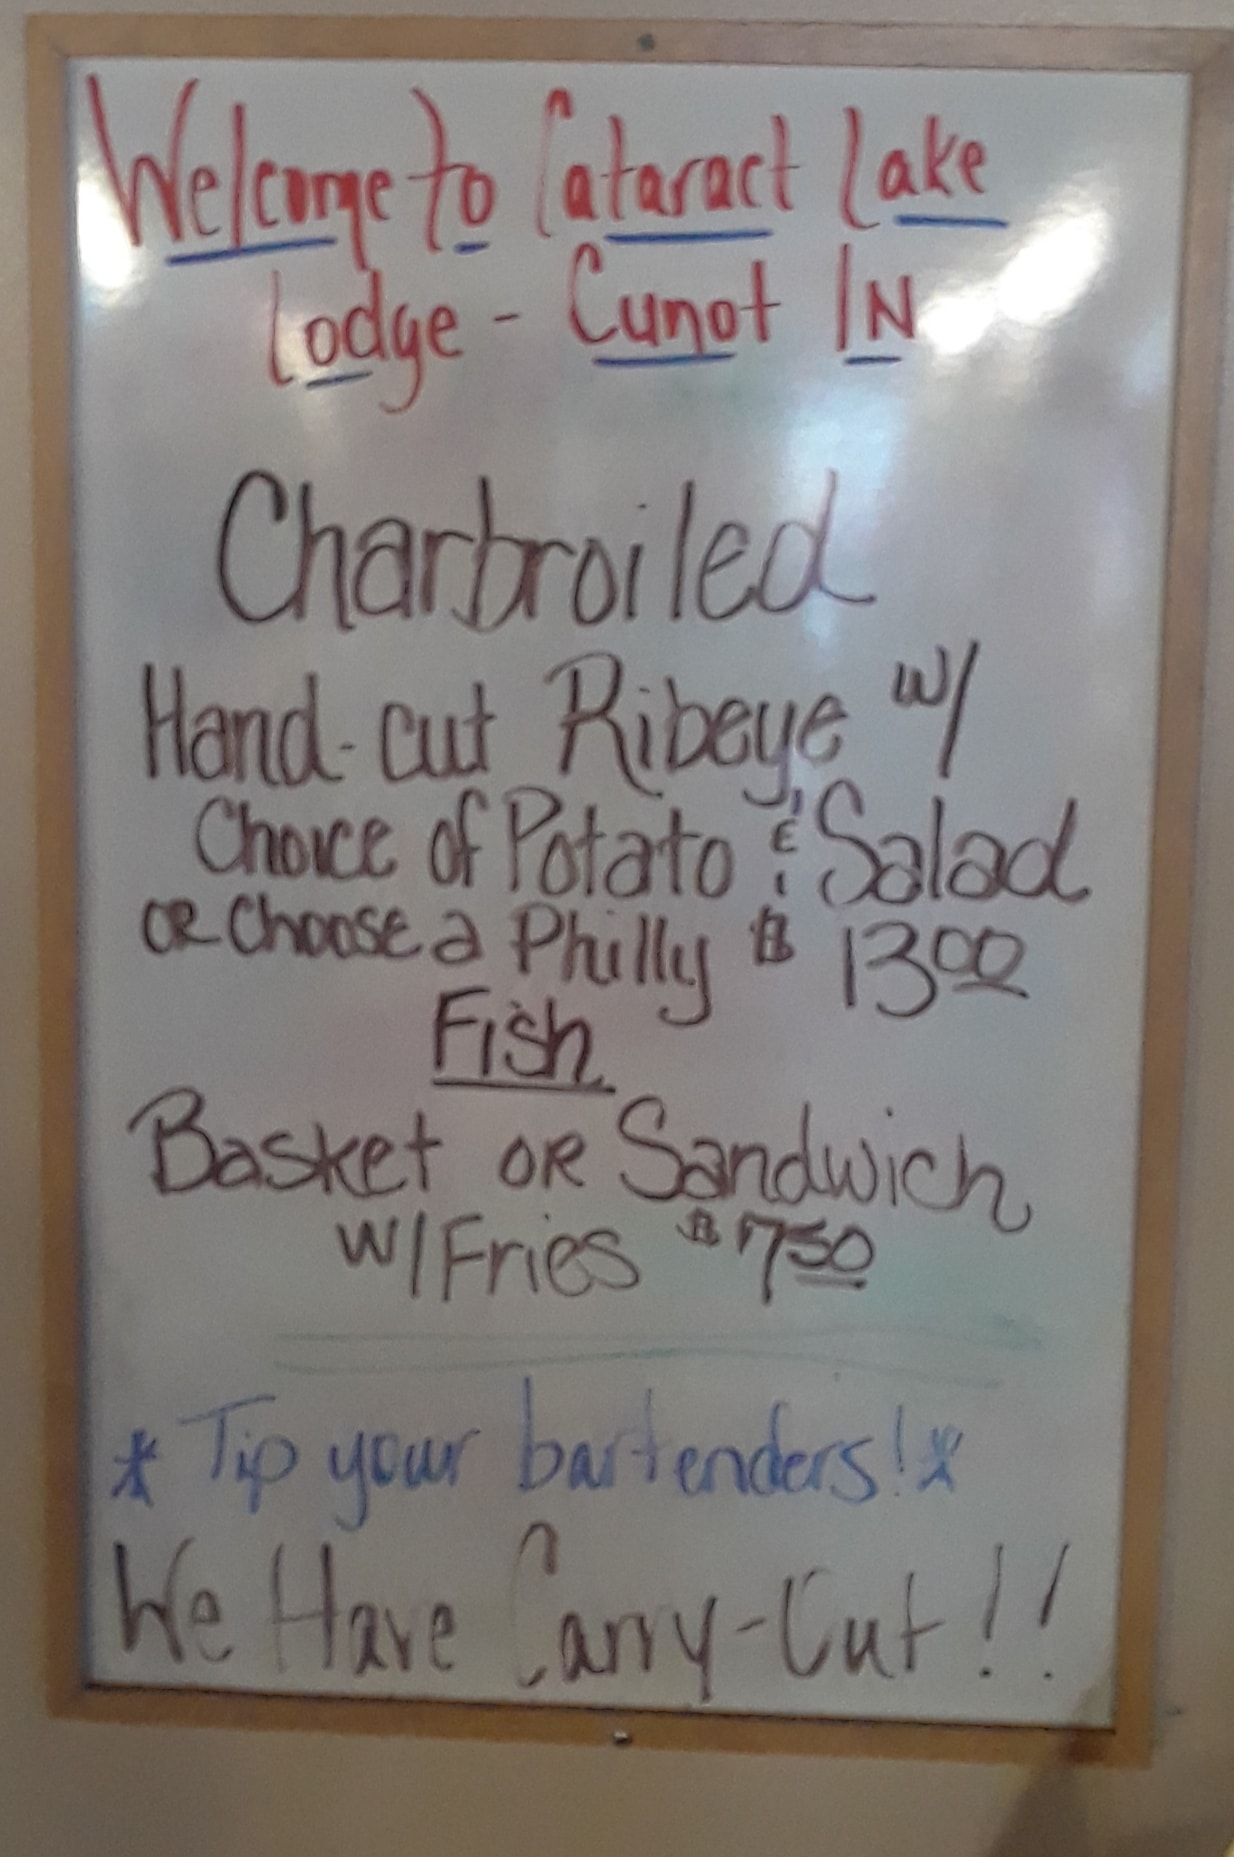 Welcome to Cataract Lake
Lodge - Cunot IN
Charbroiled
Hand-cut Ribeye w/
Choice of Potato & Salad
OR Choose a Philly $ 13.00
Fish
Basket OR Sandwich
w/ Fries $ 7.50
* Tip your bartenders! *
We Have Carry-Out!!